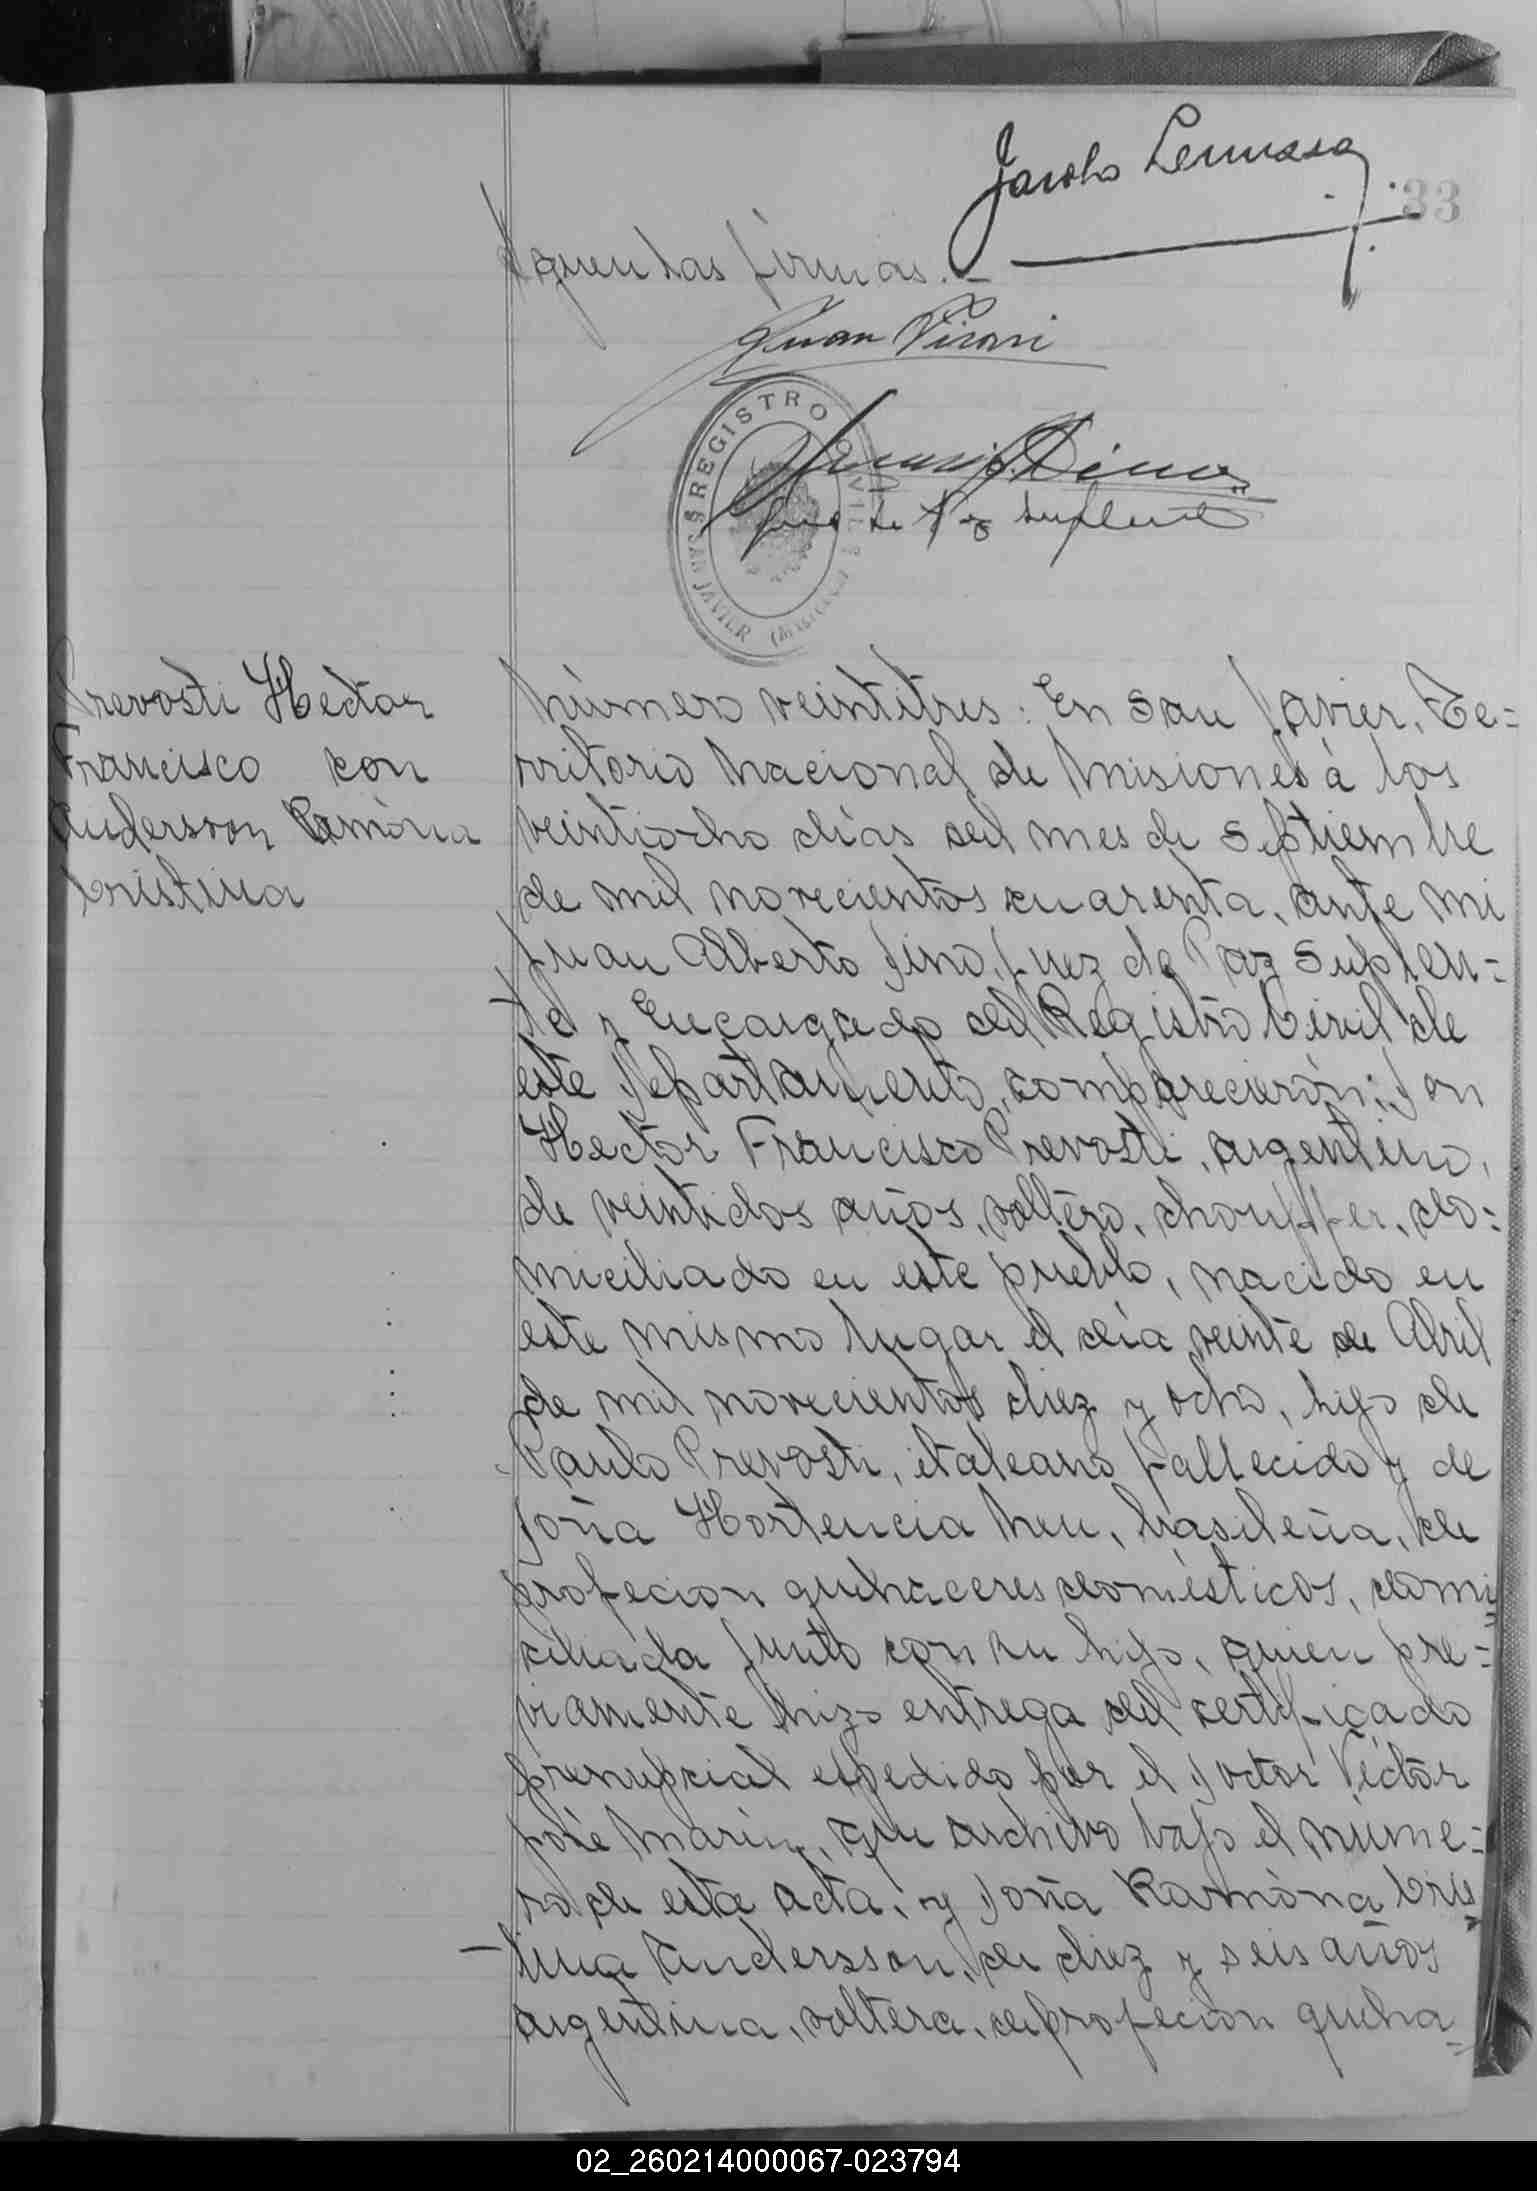 33
Siguen las firmas.—
Juan
REGISTRO CIVIL
SAN JAVIER (Misiones)
Juez de Paz Suplente
Prevosti Hector
Francisco con
Andersson Ramóna
Cristina
Número veintitres: En San Javier, Te=
rritorio Nacional de Misiones á los
veintiocho días del mes de Septiembre
de mil novecientos cuarenta, ante mi
Juan Alberto Dino, Juez de Paz Suplen=
te y Encargado del Registro Civil de
este Departamento, comparecierón: Don
Hector Francisco Prevosti, argentino,
de veintidos años, soltero, chouffer, do=
miciliado en este pueblo, nacido en
este mismo lugar el día veinte de Abril
de mil novecientos diez y ocho, hijo de
Paulo Prevosti, italeano fallecido y de
Doña Hortencia Neu, brasileña, de
profecion quehaceres doméstico​s, domi=
ciliada junto con su hijo, quien pre=
viamente hizo entrega del certificado
prenupcial espedido por el Doctor Victor
José Marin, que archivo bajo el núme=
ro de esta acta, y Doña Ramóna Cris=
tina Andersson, de diez y seis años
argentina, soltera, de profecion queha=
02_260214000067-023794